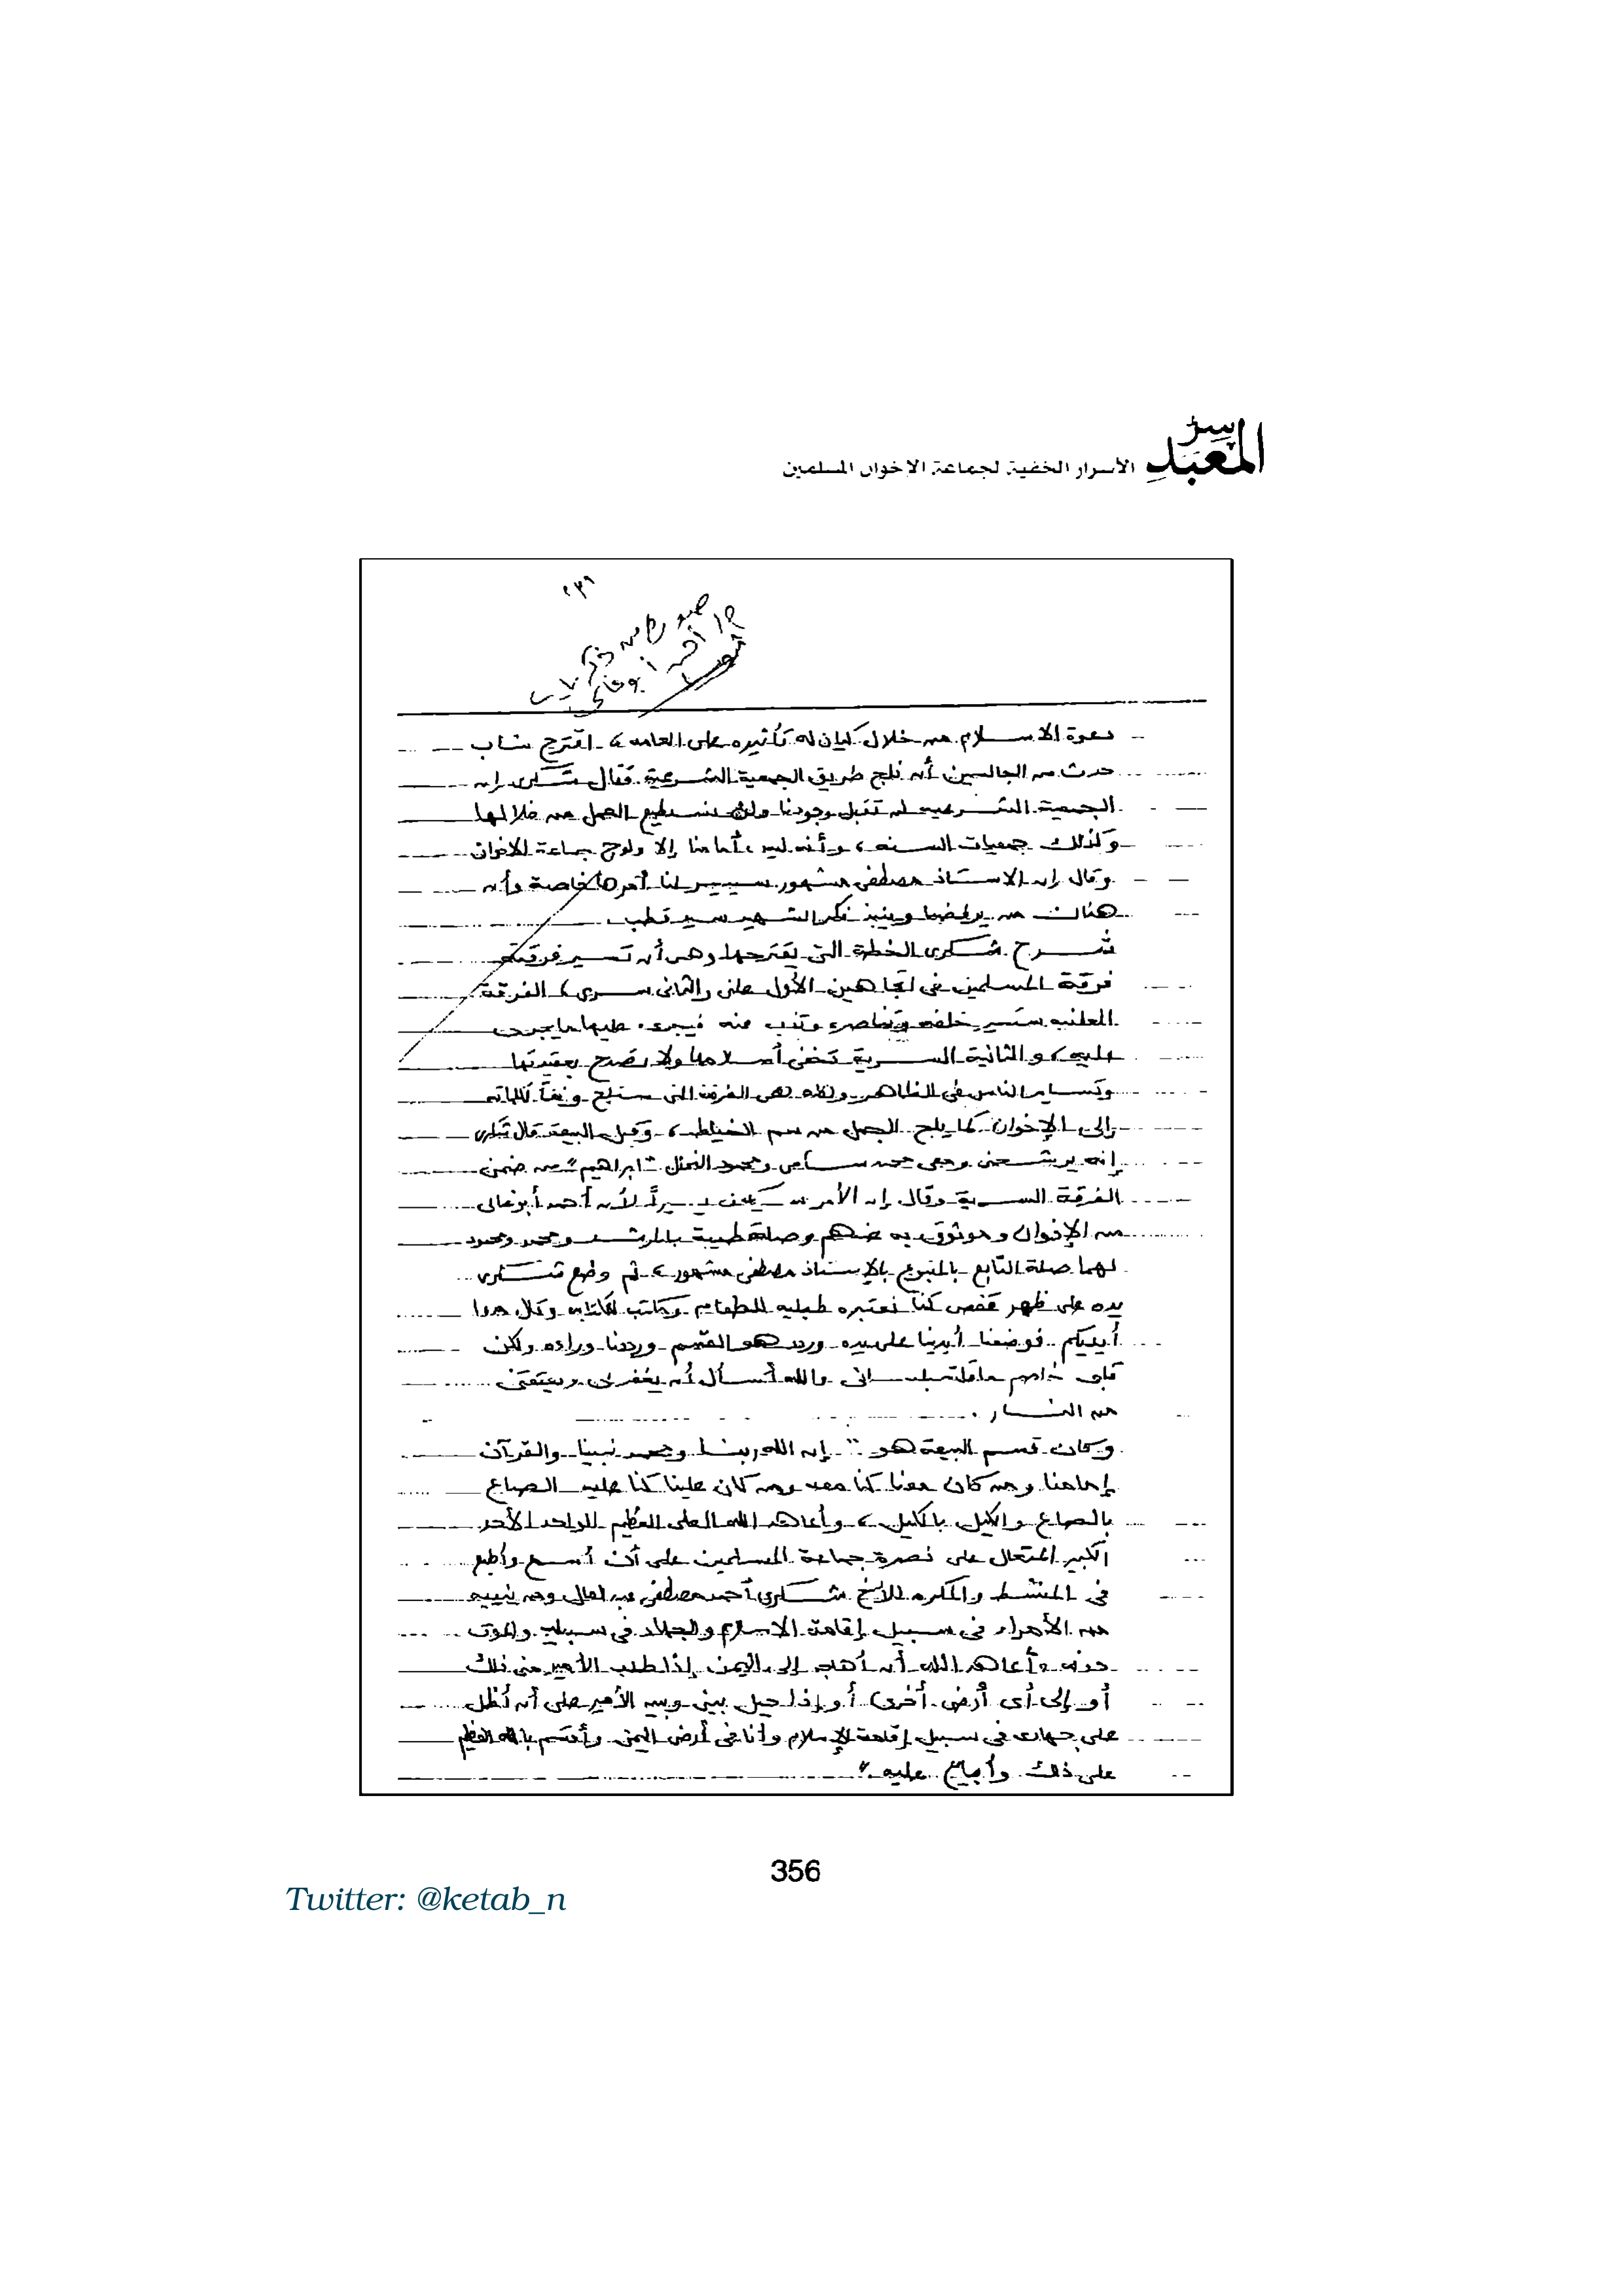 سر
المعبد
الأسرار الخفية لجماعة الإخوان المسلمين
من ذكريات
أحمد أبو غالى
دعوة الاسلام من خلال كيان له تأثيره على العامه، اقترح شاب
حدث من الجالسين أن نلج طريق الجمعية الشرعية فقال شكرى إن
الجمعية الشرعيه لن تقبل وجودنا ولن نستطيع العمل من خلالها
وكذلك جمعيات السنه، وأنه ليس أمامنا إلا ولوج جماعة الاخوان
وقال إن الاستاذ مصطفى مشهور سييسر لنا أمرها خاصة وأن
هناك من يرفضنا وينبذ فكر الشهيد سيد قطب.
شرح شكرى الخطة التى يقترحها وهى أن تسير فرقته
فرقة المسلمين فى اتجاهين الأول علنى والثانى سرى، الفرقة
العلنيه ستسير خلفه وتناصره وتذب عنه فيجرى عليها ما يجرى
عليه، والثانية السرية تخفى أسلامها ولا تصدح بعقيدتها
وتساير الناس فى الظاهر ولكنه هى الفرقة التى ستلج وفقاً لكلماته
إلى الإخوان كما يلج الجمل من سم الخياط، وقبل البيعة قال شكرى
إنه يرشحنى ومعى محمد سالم ومحمود النحال "ابراهيم" من ضمن
الفرقة السرية وقال إن الأمر سيكون يسيراً لأن أحمد أبو غالى
من الإخوان وموثوق به عندهم وصلته طيبة بالمرشد ومحمد ومحمود
لهما صلة التابع بالمتبوع بالاستاذ مصطفى مشهور، ثم وضع شكرى
يده على ظهر قفص كنا نعتبره طبليه للطعام ومكتب للكتابه وقال مدوا
أيديكم فوضعنا أيدينا على يده وردد هو القسم ورددنا وراءه ولكن
قلبى خاصم ما قاله لسانى والله أسأل أن يغفر لى ويعتقنى
من النار.
وكان قسم البيعة هو " إن الله ربنا ومحمد نبينا والقرآن
إمامنا ومن كان معنا كنا معه ومن كان علينا كنا عليه الصاع
بالصاع والكيل بالكيل، وأعاهد الله العلى العظيم الواحد الأحد
الكبير المتعال على نصرة جماعة المسلمين على أن أسمع وأطيع
فى المنشط والمكره للأخ شكرى أحمد مصطفى عبد العال ومن ينيبه
من الأمراء فى سبيل إقامة الاسلام والجهاد فى سبيله والموت
دونه وأعاهد الله أن أهاجر إلى اليمن إذا طلب الأمير منى ذلك
أو إلى أى أرض أخرى أو إذا حيل بينى وبين الأمير على أن أظل
على جهادى فى سبيل إقامة الإسلام وأنا فى أرض اليمن وأقسم بالله العظيم
على ذلك وأبايع عليه"
356
Twitter: @ketab_n